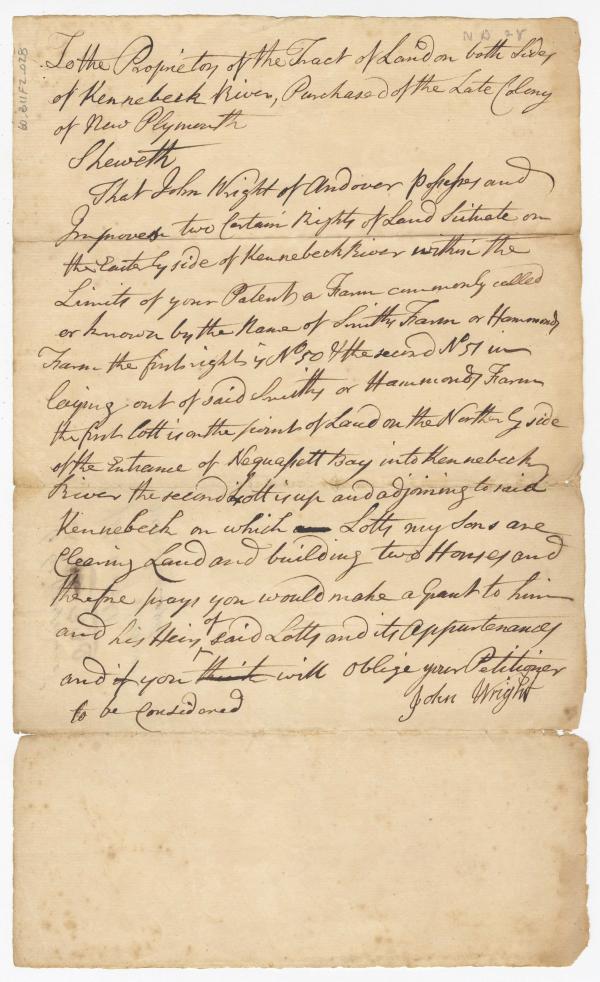 N B 28
60.811F2.028
To the Proprietors of the Tract of Land on both Sides
of Kennebeck River, Purchased of the Late Colony
of New Plymouth
Sheweth
That John Wright of Andover possesses and
Improves two Certain Rights of Land Scituate on
the Easterly side of Kennebeck River within the
Limits of your Patent, a Farm commonly called
or known by the Name of Smiths Farm or Hammonds
Farm the first right is No 50 & the second No 51 in
laying out of said Smiths or Hammonds Farm
the first Lott is on the point of Land on the Northerly side
of the Entrance of Neguasett Bay into Kennebeck
River the second Lott is up and adjoining to said
Kennebeck on which Lotts my Sons are
Clearing Land and building two Houses and
therefore prays you would make a Grant to him
and his Heirs of said Lotts and its Appurtenances
and if you think will oblige your Petitioner
to be Considered John Wright